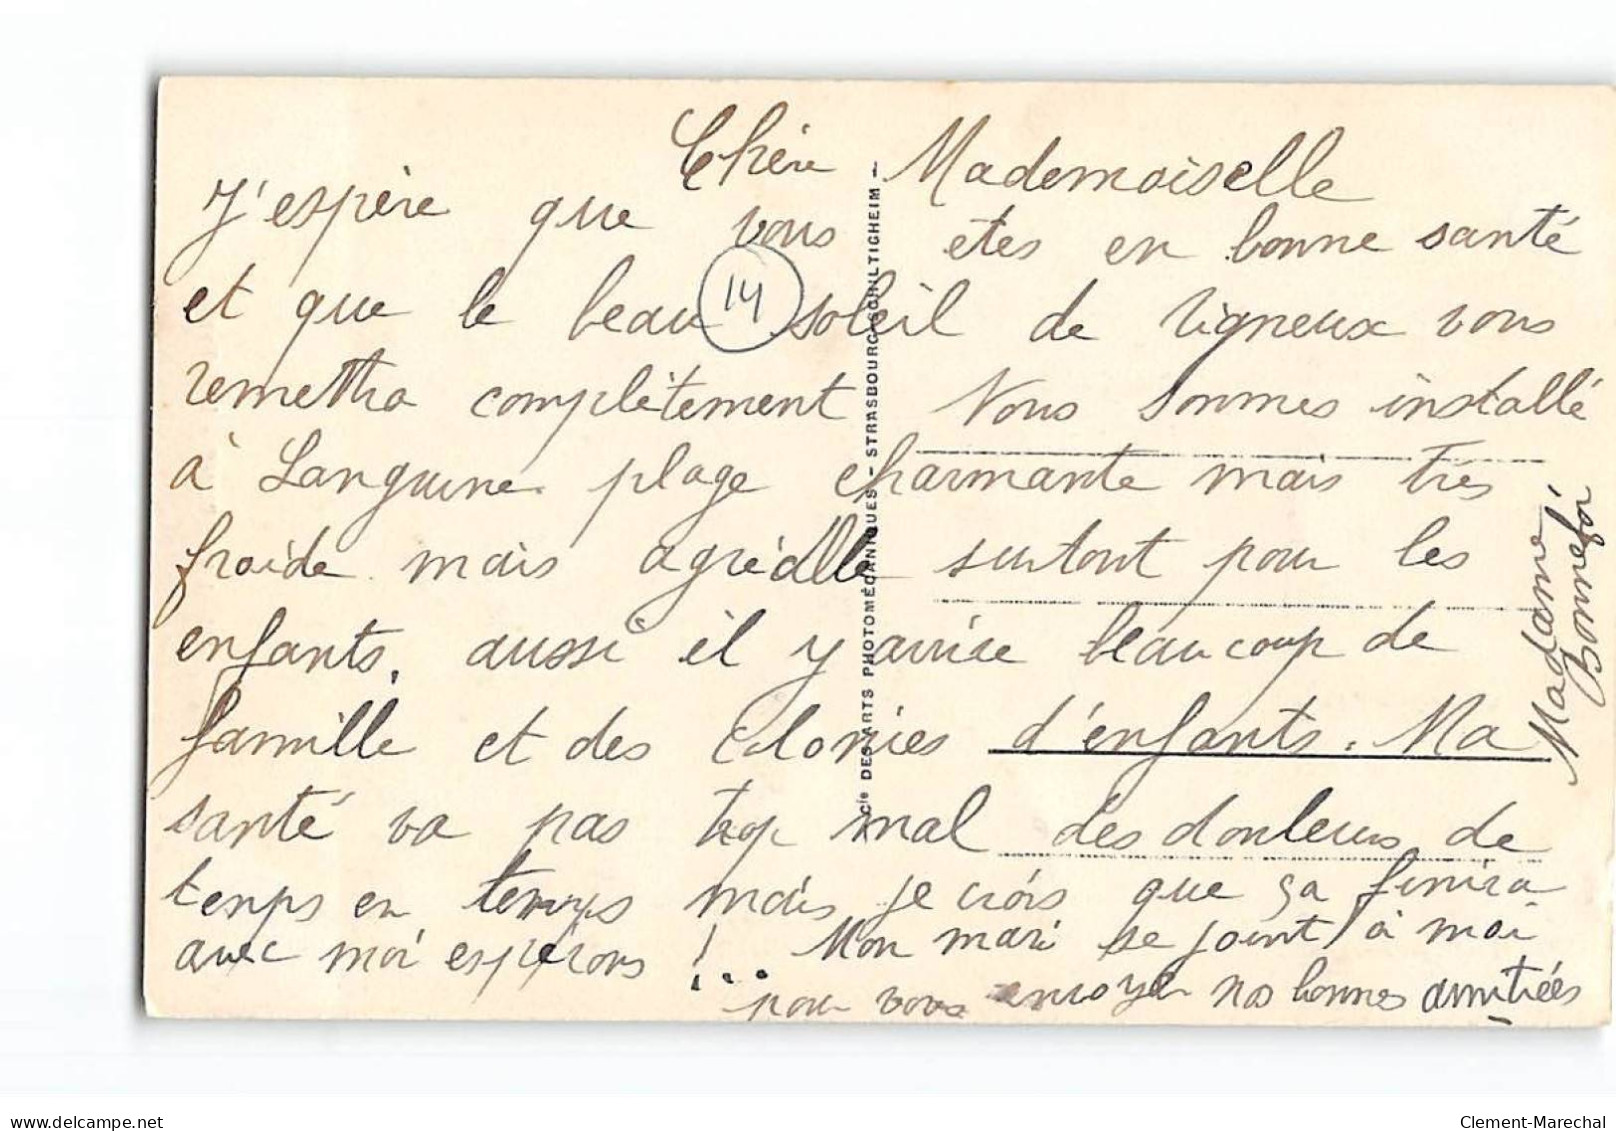 Chère Mademoiselle
J'espère que vous etes en bonne santé
et que le beau soleil de Vigneux vous
remettra complètement Nous sommes installé
à Langrune plage charmante mais très
froide mais agréable surtout pour les
enfants. aussi il y arrive beaucoup de
famille et des colonies d'enfants. Ma
santé va pas trop mal des douleurs de
temps en temps mais je crois que ça finira
avec moi espérons !... Mon mari se joint à moi
pour vous envoyer nos bonnes amitiées
Madame
14
Cie DES ARTS PHOTOMÉCANIQUES - STRASBOURG-SCHILTIGHEIM -
delcampe.net
Clement-Marechal